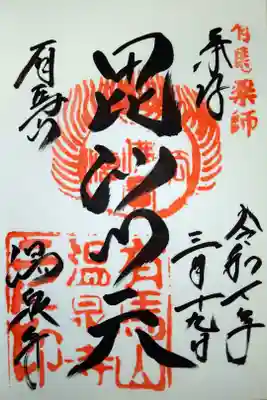 有馬薬師
奉拝
令和七年
三月十九日
毘沙门天
有馬山
温泉寺
有馬山
温泉寺